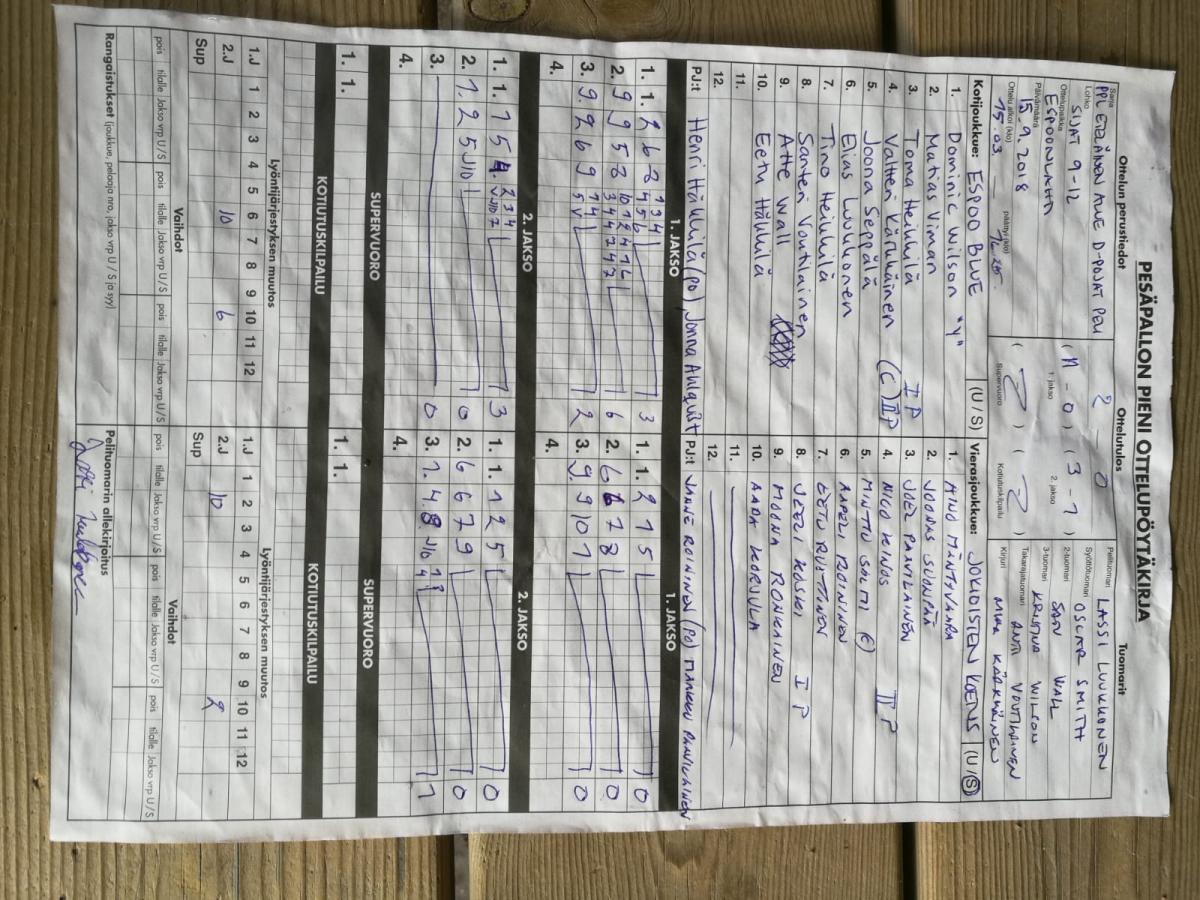 PESÄPALLON PIENI OTTELUPÖYTÄKIRJA
Ottelun perustiedot
Ottelutulos
Tuomarit
Sarja
PPL ETELÄINEN ALUE D-POJAT PELI
Lohko
SIJAT 9-12
Ottelupaikka
ESPOONLAHTI
Päivämäärä
15.9.2018
Ottelu alkoi (klo) päättyi (klo)
15.03 –
2 – 0
(11 – 0) (3 – 1)
1. jakso 2. jakso
( ) ( )
Supervuoro Kotiutuskilpailu
Pelituomari LASSI LUUKKONEN
Syöttötuomari OSCAR SMITH
2-tuomari SAN WALL
3-tuomari KRISTIINA WILSON
Takarajatuomari ANTI VOUTILAINEN
Kirjuri MIKA KÄRKKÄINEN
Kotijoukkue: ESPOO BLUE (U/S)
1. Dominic Wilson "Y"
2. Matias Viman
3. Toma Heikkilä I P
4. Valtteri Kärkkäinen (C) II P
5. Joona Seppälä
6. Elias Luukkonen
7. Tino Heikkilä
8. Santeri Voutilainen
9. Atte Wall
10. Eetu Häkkilä
11.
12.
PJ:t Henri Häkkilä (po) Jonna Ahlqvist
Vierasjoukkue: JOKIOISTEN KOETUS (U/S)
1. AINO MÄNTIVAARA
2. JOONAS SUONPÄÄ
3. JOEL PANULAINEN
4. NICO KINOS II P
5. MINTTU SALMI (C)
6. AAPELI ROININEN
7. EETU RUUTINEN
8. JEELI KOSKI I P
9. MOONA RONKAINEN
10. AADA KORJULA
11.
12.
PJ:t JANNE ROININEN (PO)
1. JAKSO
1. 1. 2 6 8 1 3 4 4 5 6 3
2. 9 9 5 8 6
3. 9. 2 6 9 2
4.
1. JAKSO
1. 1. 2 1 5 0
2. 6 6 7 8 0
3. 9 9 10 1 0
4.
2. JAKSO
1. 1. 1 5 4. 2 3 4 3
2. 1. 2 5 J10 0
3. 0
4.
2. JAKSO
1. 1. 1 2 5 0
2. 6 6 7 9 0
3. 1. 4. 8 J10 1
4.
SUPERVUORO
1. 1.
SUPERVUORO
1. 1.
KOTIUTUSKILPAILU
KOTIUTUSKILPAILU
Lyöntijärjestyksen muutos
1.J 1 2 3 4 5 6 7 8 9 10 11 12
2.J 10 6
Sup
Lyöntijärjestyksen muutos
1.J 1 2 3 4 5 6 7 8 9 10 11 12
2.J 10 2
Sup
Vaihdot
pois tilalle Jakso vrp U/S pois tilalle Jakso vrp U/S pois tilalle Jakso vrp U/S
Vaihdot
pois tilalle Jakso vrp U/S pois tilalle Jakso vrp U/S pois tilalle Jakso vrp U/S
Rangaistukset (joukkue, pelaaja nro, jakso vrp U / S ja syy)
Pelituomarin allekirjoitus